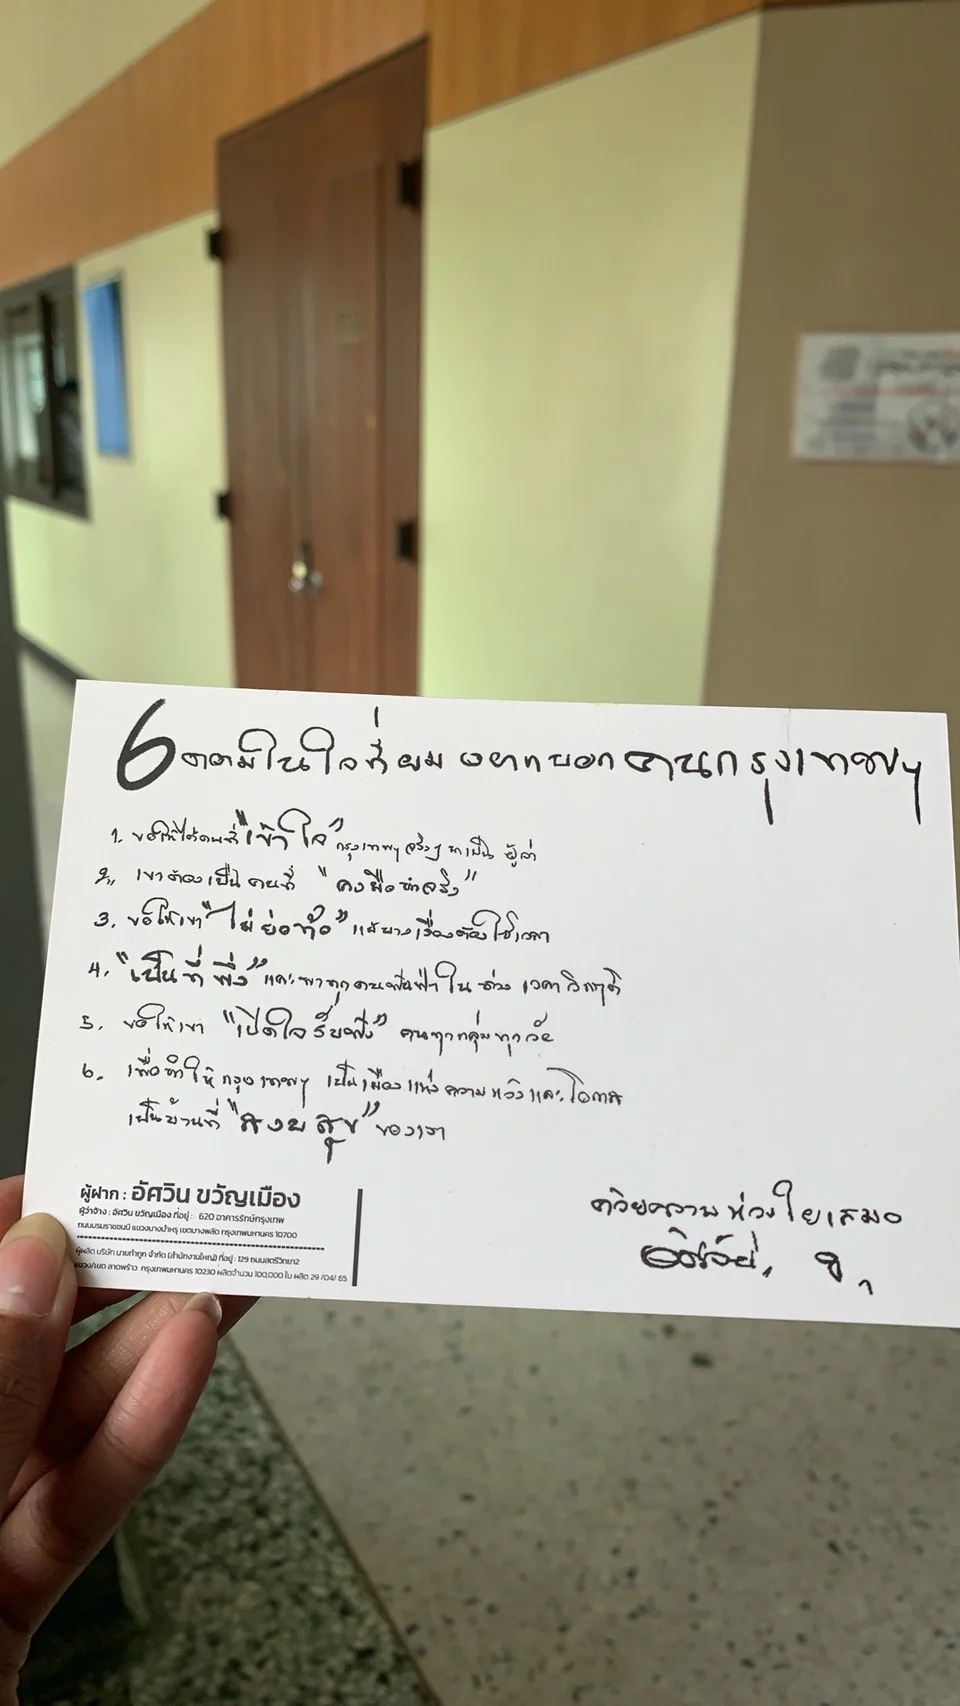 6 ความในใจที่ผม อยากบอก คนกรุงเทพฯ
1. ขอให้ได้คนที่ "เข้าใจ" กรุงเทพฯ จริงๆ มาเป็น ผู้ว่า
2. เขาต้องเป็น คนที่ "ลงมือทำจริง"
3. ขอให้เขา "ไม่ย่อท้อ" แม้บางเรื่องต้องใช้เวลา
4. "เป็นที่พึ่ง" และพาทุกคนฟันฝ่าในช่วงเวลาวิกฤติ
5. ขอให้เขา "เปิดใจรับฟัง" คนทุกกลุ่มทุกวัย
6. เพื่อทำให้กรุงเทพฯ เป็นเมืองแห่งความหวังและโอกาส
เป็นบ้านที่ "สงบสุข" ของเรา
ด้วยความห่วงใยเสมอ
ผู้ฝาก : อัศวิน ขวัญเมือง
ผู้ว่าจ้าง : อัศวิน ขวัญเมือง ที่อยู่ : 620 อาคารรักษ์กรุงเทพ
ถนนบรมราชชนนี แขวงบางบำหรุ เขตบางพลัด กรุงเทพมหานคร 10700
ผู้ผลิต บริษัท นายทำทุก จำกัด (สำนักงานใหญ่) ที่อยู่ : 129 ถนนสตรีวิทยา2
แขวง/เขต ลาดพร้าว กรุงเทพมหานคร 10230 ผลิตจำนวน 100,000 ใบ ผลิต 29 /04/ 65